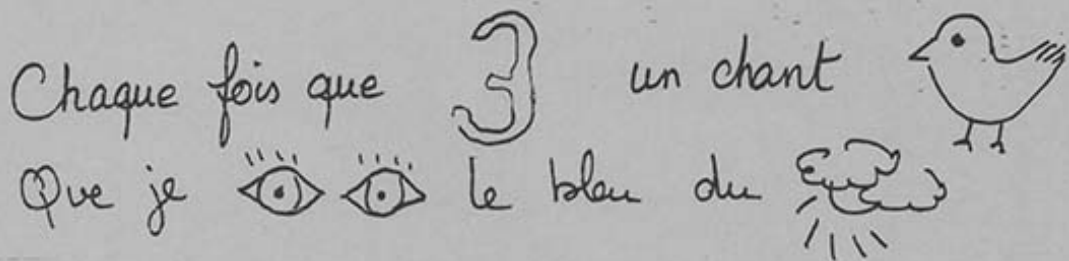 Chaque fois que un chant
Que je le bleu du